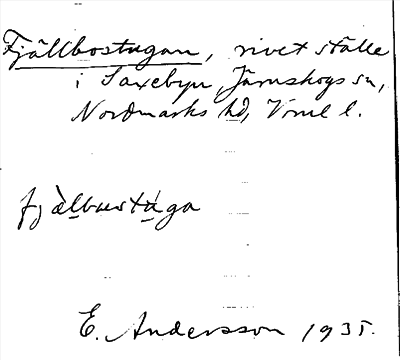 Fjällbostugan, rivet ställe
i Saxebyn, Järnskogs sn,
Nordmarks hd, Vrml l.
fjä̀lbustá̀ga
E. Andersson 1935.